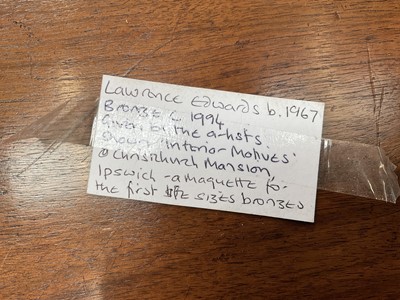 Lawrence Edwards b. 1967
Bronze c 1994
Given by the artists
show 'Interior Motives'
@ Christchurch Mansion,
Ipswich - a maquette for
the first life sizes bronzes